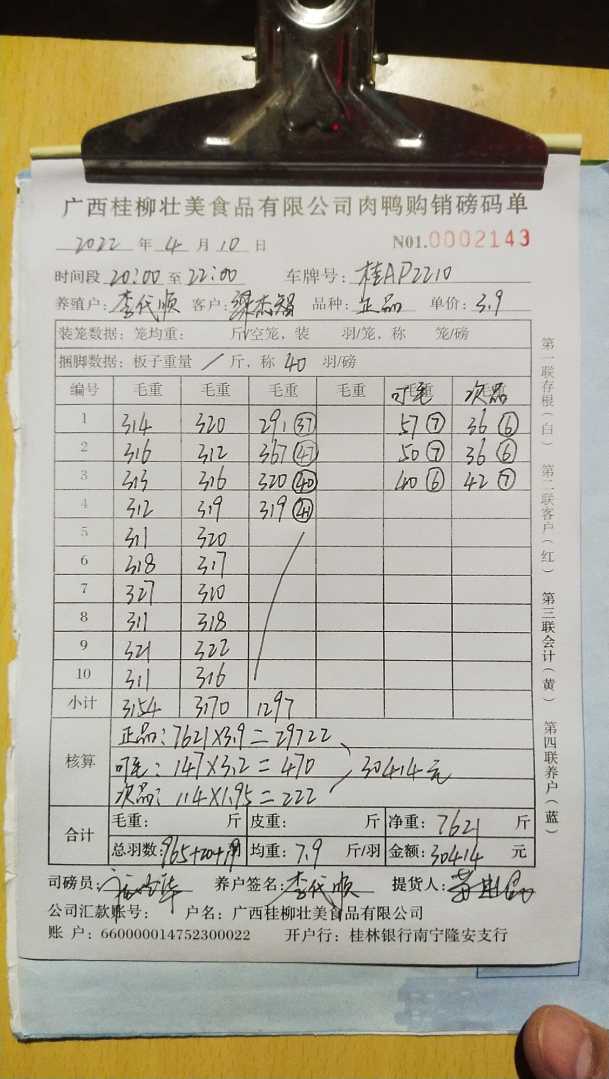 广西桂柳壮美食品有限公司肉鸭购销磅码单
2022 年 4 月 10 日 N01.0002143
时间段 20:00 至 22:00 车牌号: 桂AP2210
养殖户: 李代顺 客户: 梁杰智 品种: 正品 单价: 3.9
装笼数据: 笼均重: 斤/空笼, 装 羽/笼, 称 笼/磅
捆脚数据: 板子重量 / 斤, 称 40 羽/磅
编号 毛重 毛重 毛重 毛重 可毛 次品
1 314 320 291 (37) 57 (7) 36 (6)
2 316 312 367 (47) 50 (7) 36 (6)
3 313 316 320 (40) 40 (6) 42 (7)
4 312 319 319 (41)
5 311 320
6 318 317
7 327 310
8 311 318
9 321 322
10 311 316
小计 3154 3170 1297
核算
正品: 7621×3.9=29722
可毛: 147×3.2=470 30414元
次品: 114×1.95=222
合计
毛重: 斤 皮重: 斤 净重: 7621 斤
总羽数: 965+20+19 均重: 7.9 斤/羽 金额: 30414 元
司磅员: 养户签名: 李代顺 提货人:
公司汇款账号: 户名: 广西桂柳壮美食品有限公司
账 户: 660000014752300022 开户行: 桂林银行南宁隆安支行
第一联存根(白) 第二联客户(红) 第三联会计(黄) 第四联养户(蓝)